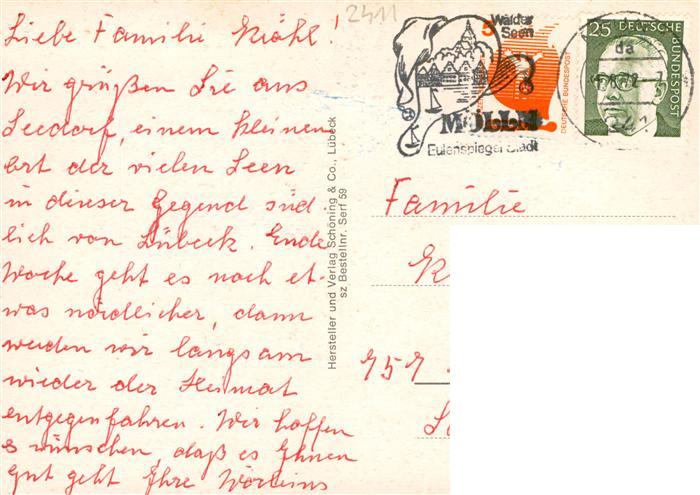 2411
Liebe Familie Krähl!
Wir grüßen Sie aus
Seedorf, einem kleinen
Ort der vielen Seen
in dieser Gegend süd-
lich von Lübeck. Ende
Woche geht es noch et-
was nördlicher, dann
werden wir langsam
wieder der Heimat
entgegenfahren. Wir hoffen
& wünschen, daß es Ihnen
gut geht Ihre
Hersteller und Verlag Schöning & Co., Lübeck
sz Bestellnr. Serf 59
Wälder
Seen
MÖLLN
Eulenspiegel Stadt
5
DEUTSCHE BUNDESPOST
25 DEUTSCHE
BUNDESPOST
da
Familie
K
757